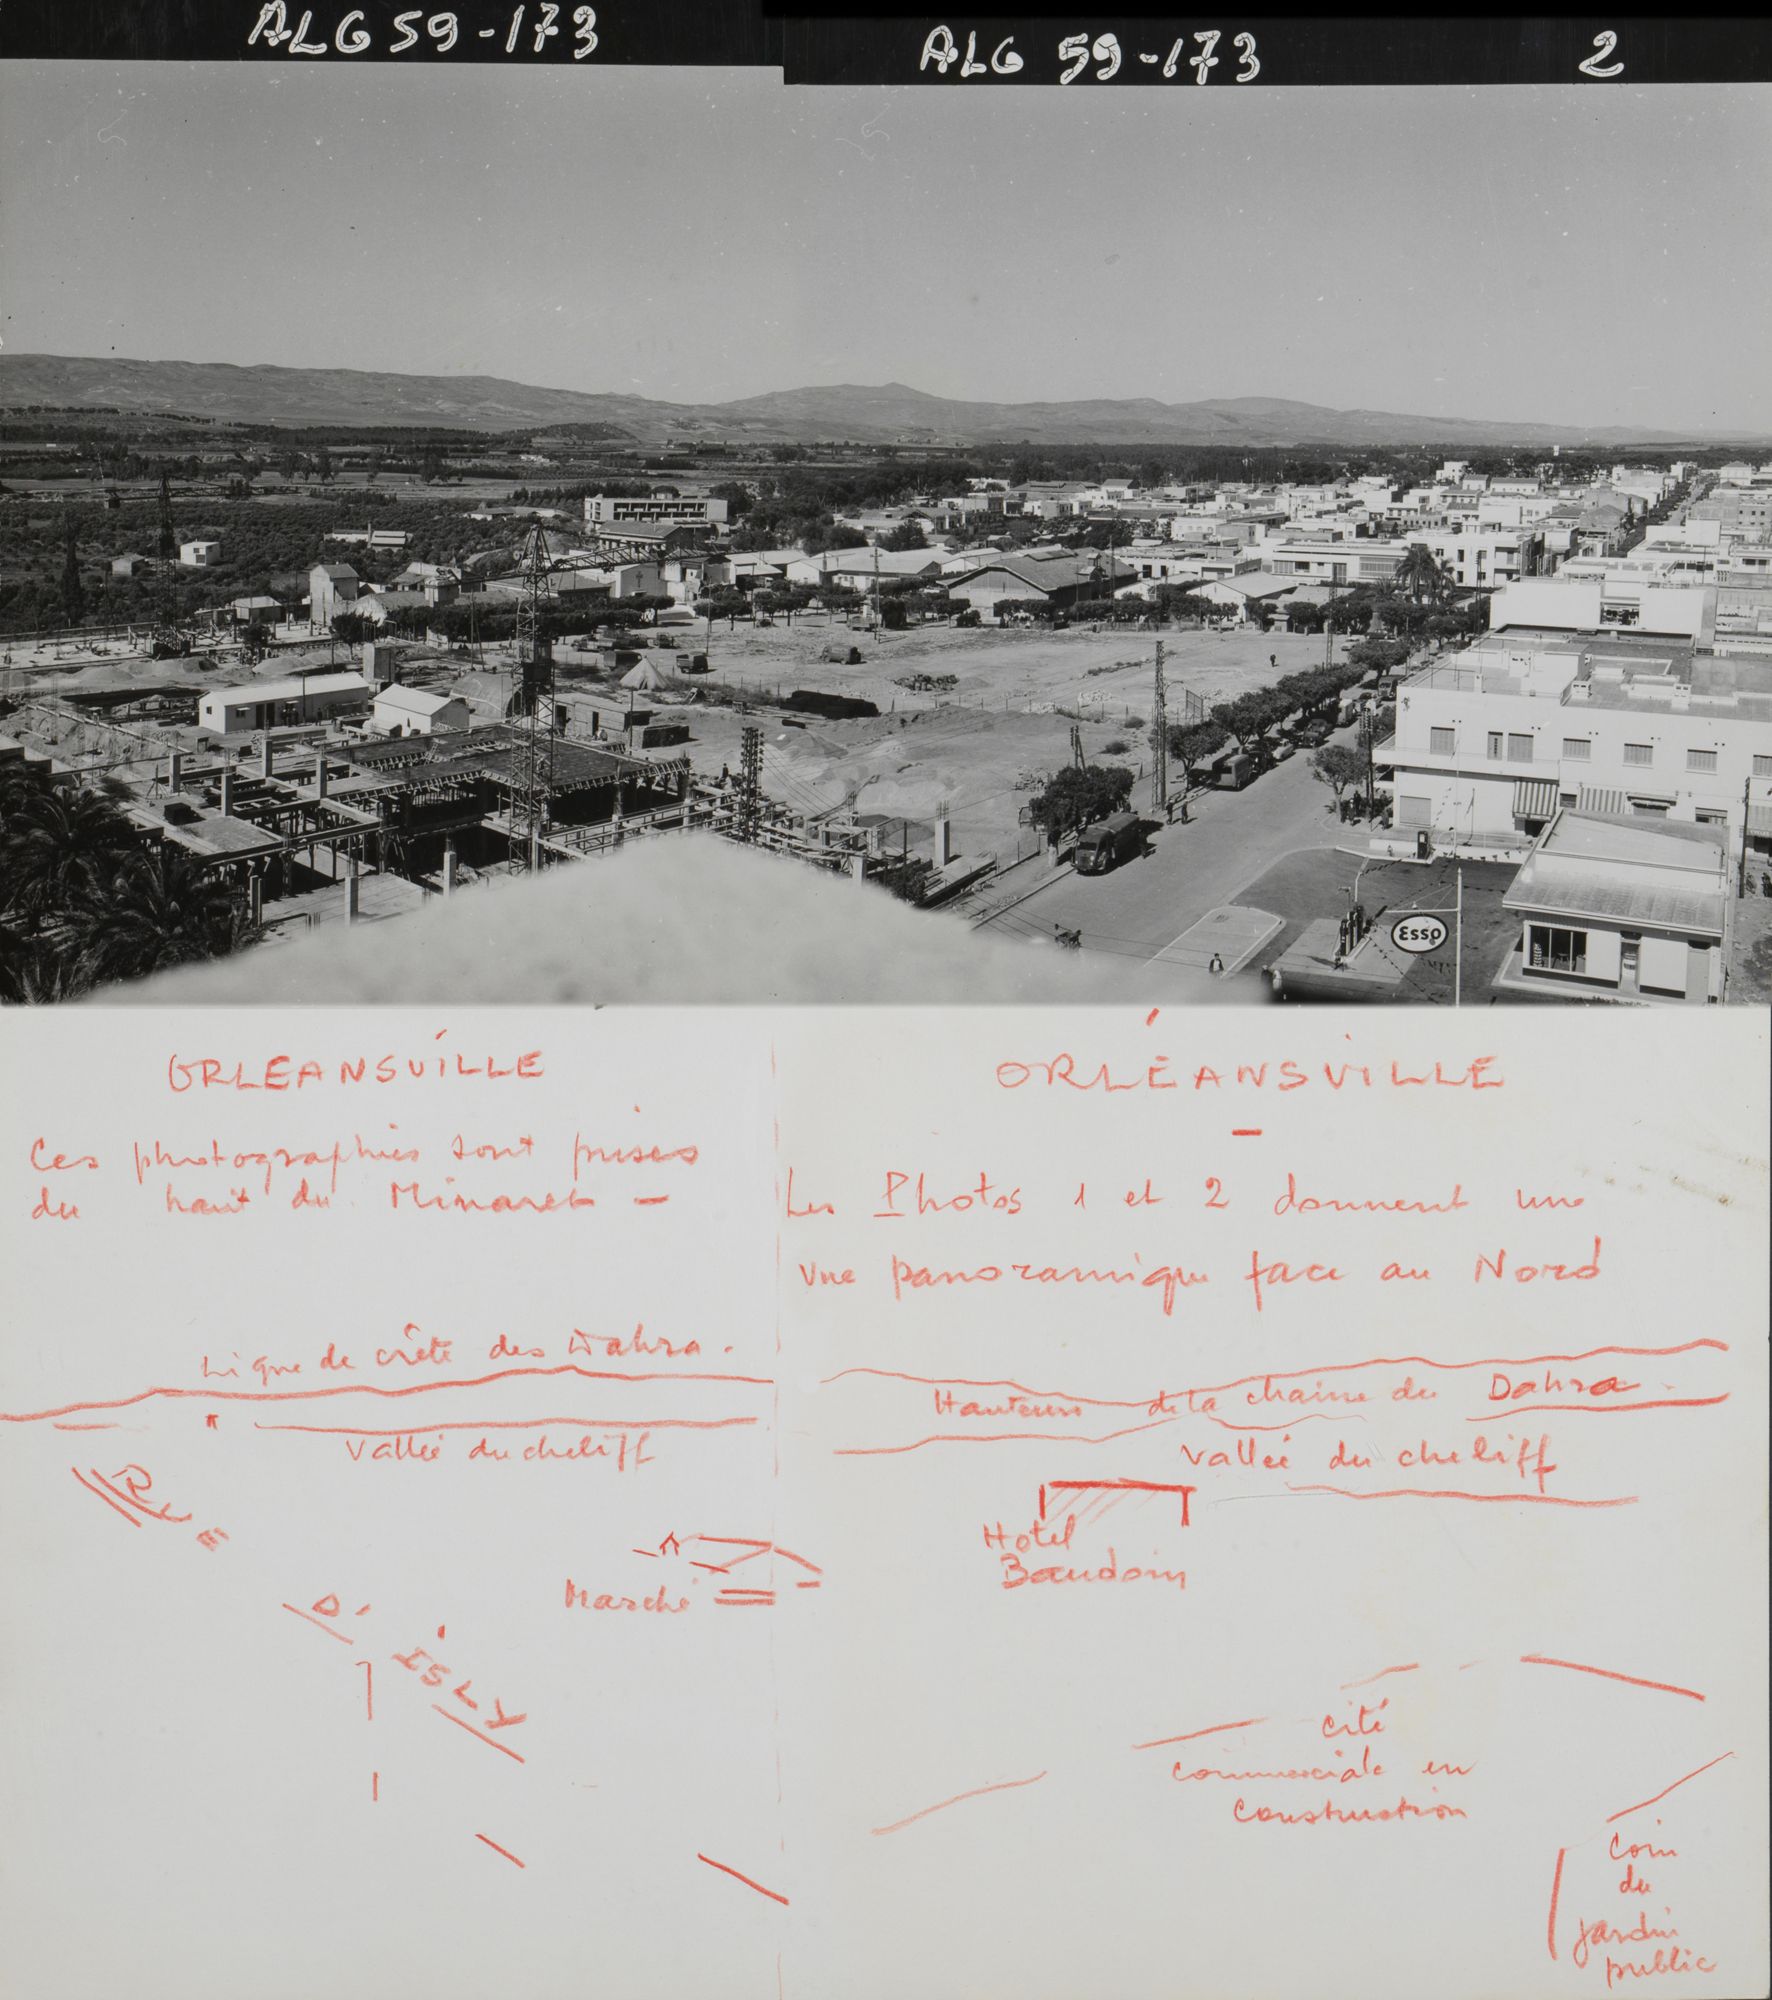 ALG 59-173
ALG 59-173 2
Esso
ORLEANSVILLE
Ces photographies sont prises
du haut du Minaret -
Ligne de crête des Dahra.
Vallée du cheliff
RUE
D'
ISLY
Marché
ORLÉANSVILLE
-
Les Photos 1 et 2 donnent une
vue panoramique face au Nord
Hauteurs de la chaine du Dahra.
Vallée du cheliff
Hotel
Baudoin
cité
commerciale en
construction
coin
du
jardin
public